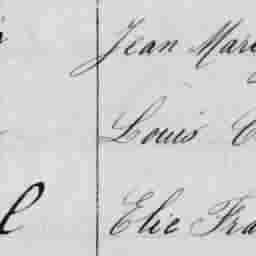 Jean Mar
Louis
l Elie Fra